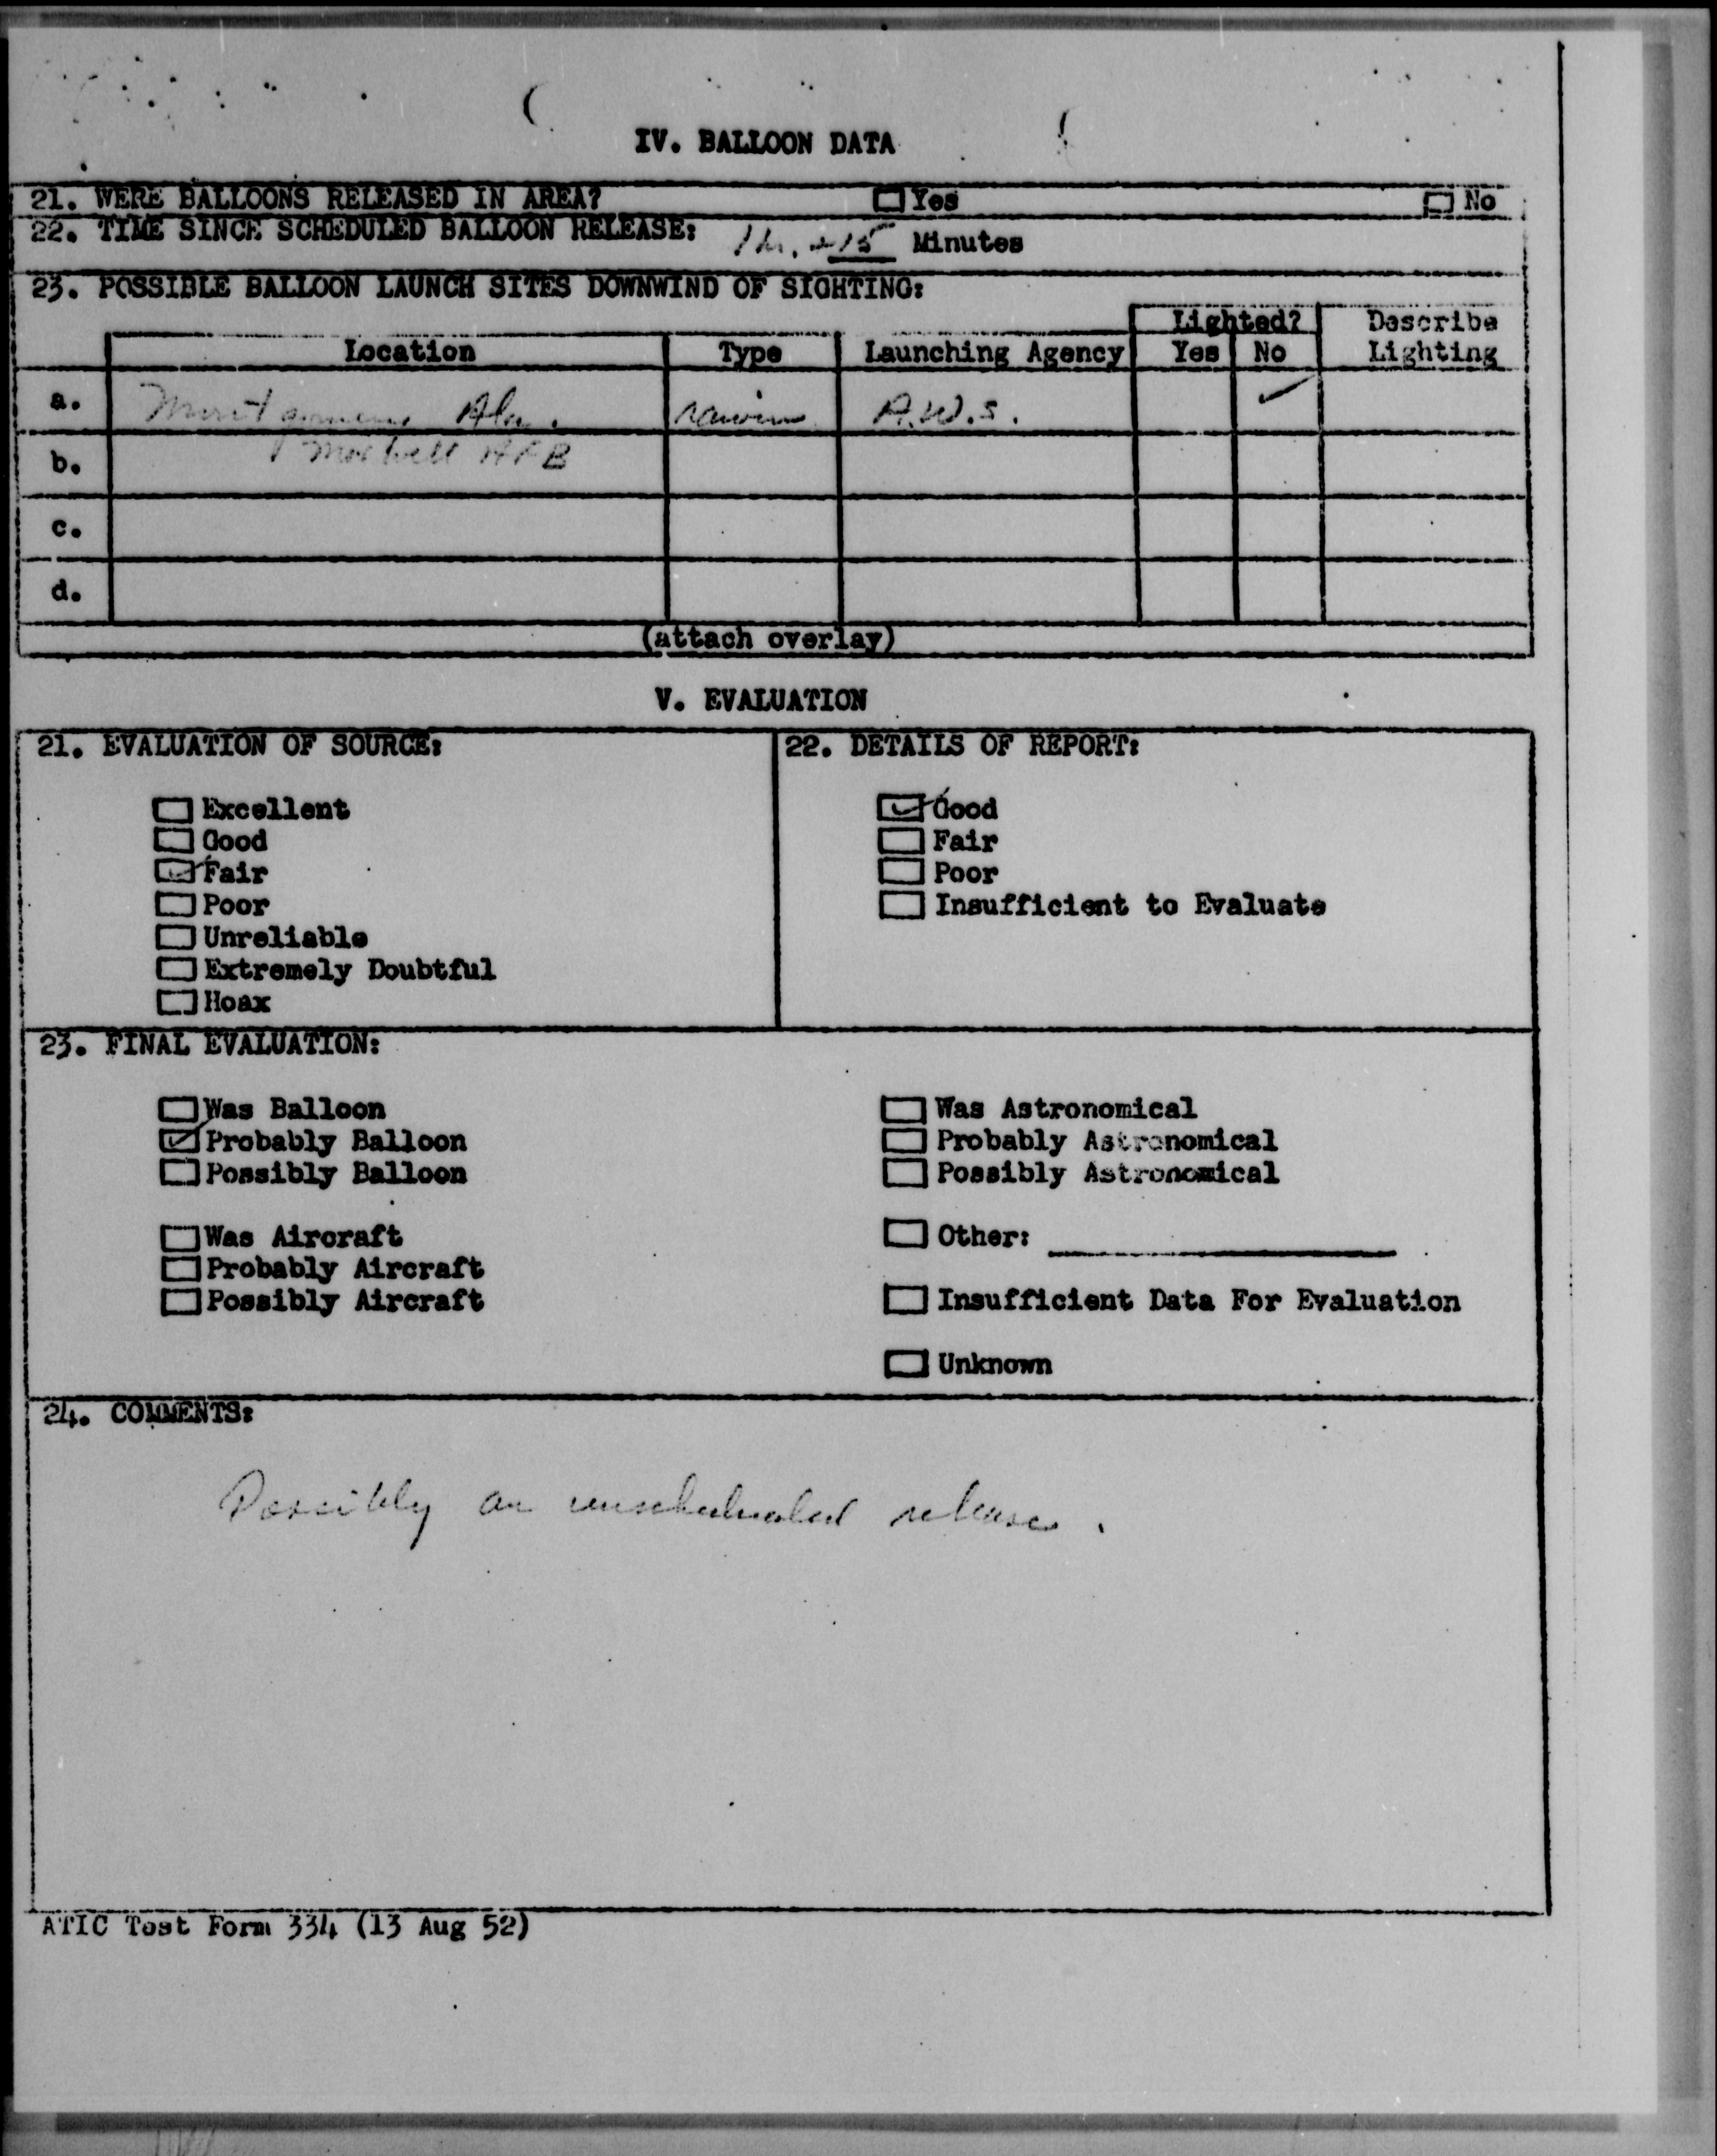 IV. BALLOON DATA
21. WERE BALLOONS RELEASED IN AREA? Yes No
22. TIME SINCE SCHEDULED BALLOON RELEASE: 1 hr. + 15 Minutes
23. POSSIBLE BALLOON LAUNCH SITES DOWNWIND OF SIGHTING:
Lighted? Describe
Location Type Launching Agency Yes No Lighting
a. Montgomery Ala. rawin A.W.S. ✓
b. Maxwell AFB
c.
d.
(attach overlay)
V. EVALUATION
21. EVALUATION OF SOURCE: 22. DETAILS OF REPORT:
Excellent ✓ Good
Good Fair
✓ Fair Poor
Poor Insufficient to Evaluate
Unreliable
Extremely Doubtful
Hoax
23. FINAL EVALUATION:
Was Balloon Was Astronomical
✓ Probably Balloon Probably Astronomical
Possibly Balloon Possibly Astronomical
Was Aircraft Other:
Probably Aircraft
Possibly Aircraft Insufficient Data For Evaluation
Unknown
24. COMMENTS:
Possibly an unscheduled release.
ATIC Test Form 334 (13 Aug 52)